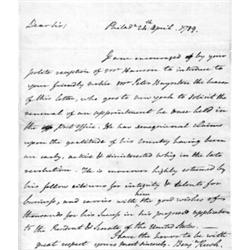 Dear Sir, Philad.a 24th April, 1789.
I am encouraged by your
polite reception of Mr Harrison to introduce to
your friendly notice Mr Peter Baynton the bearer
of this letter, who goes to new york to solicit the
renewal of an appointment he once held in
the post office. He has exceptional claims
upon the gratitude of his country, having been
an early, active & disinterested whig in the late
revolution. He is moreover highly esteemed by
his fellow citizens for integrity & talents for
business, and carries with him the good wishes of
thousands for his success in his proposed application
to the President & Senate of the United States.
I have the honor to be with
great respect yours most sincerely. Benj. Rush.